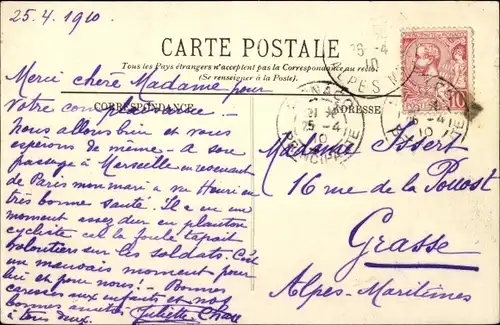 25.4.1910
CARTE POSTALE
Tous les Pays étrangers n'acceptent pas la Correspondance au recto.
(Se renseigner à la Poste).
CORRESPONDANCE
ADRESSE
Merci chère Madame pour
Votre complaisance –
Nous allons bien et vous
espérons de même – A son
passage à Marseille en revenant
de Paris mon mari a vu Henri en
très bonne santé. Il a eu un
moment assez dur en planton
cycliste car la foule tapait
volontiers sur les soldats. C'ét
un mauvais moment pour
lui et pour nous! – Bonnes
caresses aux enfants et nos
bonnes amitiés
à tous deux. Juliette
Madame Issert
16 rue de la
Grasse
Alpes-Maritimes
26-4
10
ALPES
MONACO
25-4
10
PRINCIPAUTÉ
25-4
10
10